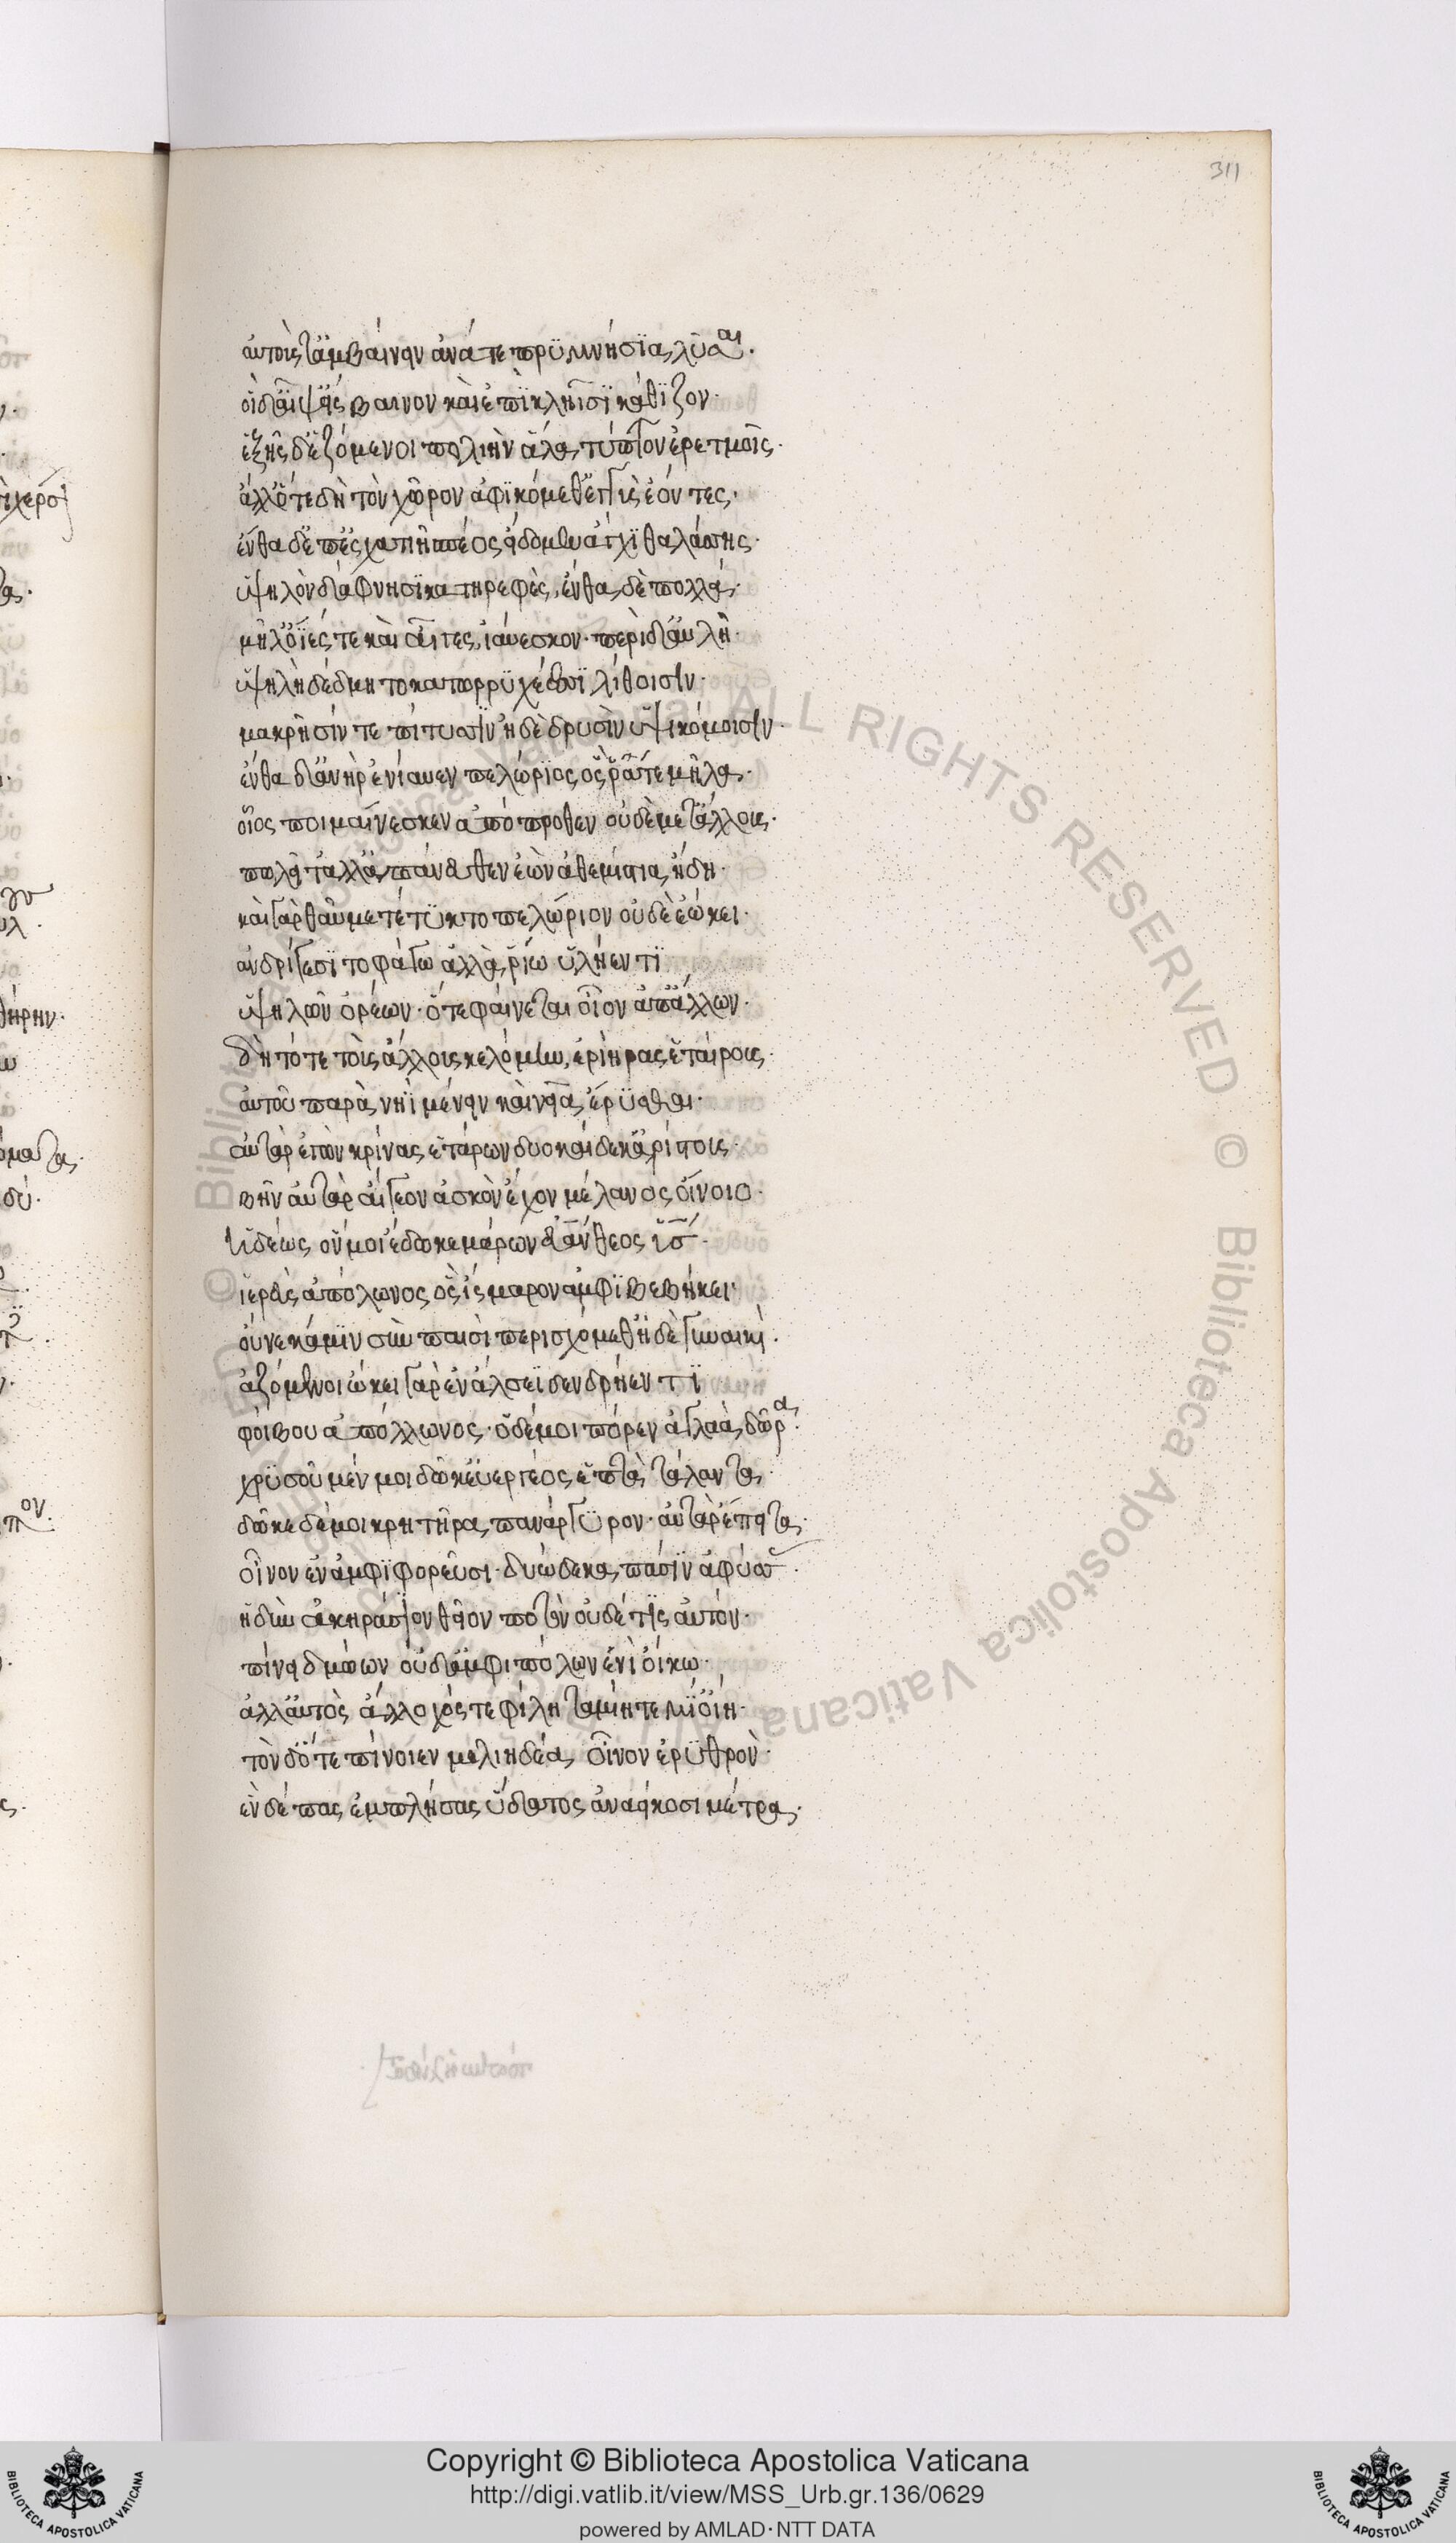 311
αὐτούς τ' ἀμβαίνειν ἀνά τε πρϋμνήσϊα λῦσαι.
οἱ δ' αἶψ' εἴςβαινον καὶ ἐπϊ κληῗσϊ κάθϊζον·
ἑξῆς δ' ἑζόμενοι πολιὴν ἅλα τύπτον ἐρετμοῖς·
ἀλλ' ὅτε δὴ τὸν χῶρον ἀφϊκόμεθ' ἐγγὺς ἐόντες·
ἔνθα δ' ἐπ' ἐσχατιῆ σπέος εἴδομεν ἄγχϊ θαλάσσης·
ὑψηλὸν δάφνησϊ κατηρεφὲς, ἔνθα δὲ πολλὰ·
μῆλ' ὄϊές τε καὶ αἶγες, ἰαύεσκον· περὶ δ' αὐλὴ·
ὑψηλὴ δέδμητο κατωρρϋχέεσσϊ λίθοισϊν·
μακρῆσίν τε πίτυσσϊν ἠδὲ δρυσὶν ὑψικόμοισϊν·
ἔνθα δ' ἀνὴρ ἐνίαυεν πελώρϊος ὅς ῥά τε μῆλα·
οἶος ποιμαίνεσκεν ἀπόπροθεν οὐδὲ μετ' ἄλλους·
πωλεῖτ' ἀλλ' ἀπάνευθεν ἐὼν ἀθεμίστια ἤδη·
καὶ γὰρ θαῦμ' ετέτϋκτο πελώριον οὐδὲ ἐώκει·
ἀνδρί γε σϊτοφάγω ἀλλὰ ῥίω ὑλήεντϊ
ὑψηλῶν ὀρέων· ὅτε φαίνεται οἶον ἀπ' ἄλλων·
δὴ τότε τοὺς ἄλλους κελόμην, ἐρίηρας ἑταίρους·
αὐτοῦ παρὰ νηῒ μένειν καὶ νῆα ἔρϋσθαι·
αὐτὰρ ἐγὼν κρίνας ἑτάρων δυοκαίδεκ' ἀρίστους·
βῆν αὐτὰρ αἴγεον ἀσκὸν ἔχον μέλανος οἴνοιο·
ἡδέως οὕ μοι ἔδωκε μάρων εὐάνθεος ὑσ·
ἱερεὺς ἀπόλωνος ὃς ἴςμαρον ἀμφϊβεβήκει·
οὕνεκά μϊν σὺν παισὶ περισχόμεθ' ἠδὲ γυναικὶ·
ἁζόμενοι ὤκει γὰρ ἐν ἄλσεϊ δενδρήεντϊ
φοίβου ἀπόλλωνος· ὁ δέ μοι πόρεν ἀγλαὰ δῶρα·
χρϋσοῦ μέν μοι δῶκ' εὐεργέος ἑπτὰ τάλαντα·
δῶκε δέ μοι κρητῆρα πανάργϋρον· αὐτὰρ ἔπειτα·
οἶνον ἐν ἀμφϊφορεῦσι· δυώδεκα πᾶσϊν ἀφύσσ·
ἡδὺν ἀκηράσϊον θεῖον ποτὸν οὐδέ τϊς αὐτὸν·
πίνει δμώων οὐδ' ἀμφιπόλων ἐνὶ οἴκω·
ἀλλ' αὐτὸς ἄλλοχός τε φίλη ταμίη τε μϊ' οἴη·
τὸν δ' ὅτε πίνοιεν μελιηδέα οἶνον ἐρϋθρὸν·
ἓν δέπας ἐμπλήσας ὕδατος ἀνὰ εἴκοσι μέτρα·
Copyright © Biblioteca Apostolica Vaticana
http://digi.vatlib.it/view/MSS_Urb.gr.136/0629
powered by AMLAD·NTT DATA